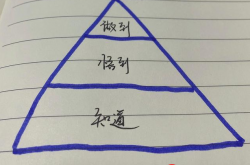 做到
悟到
知道